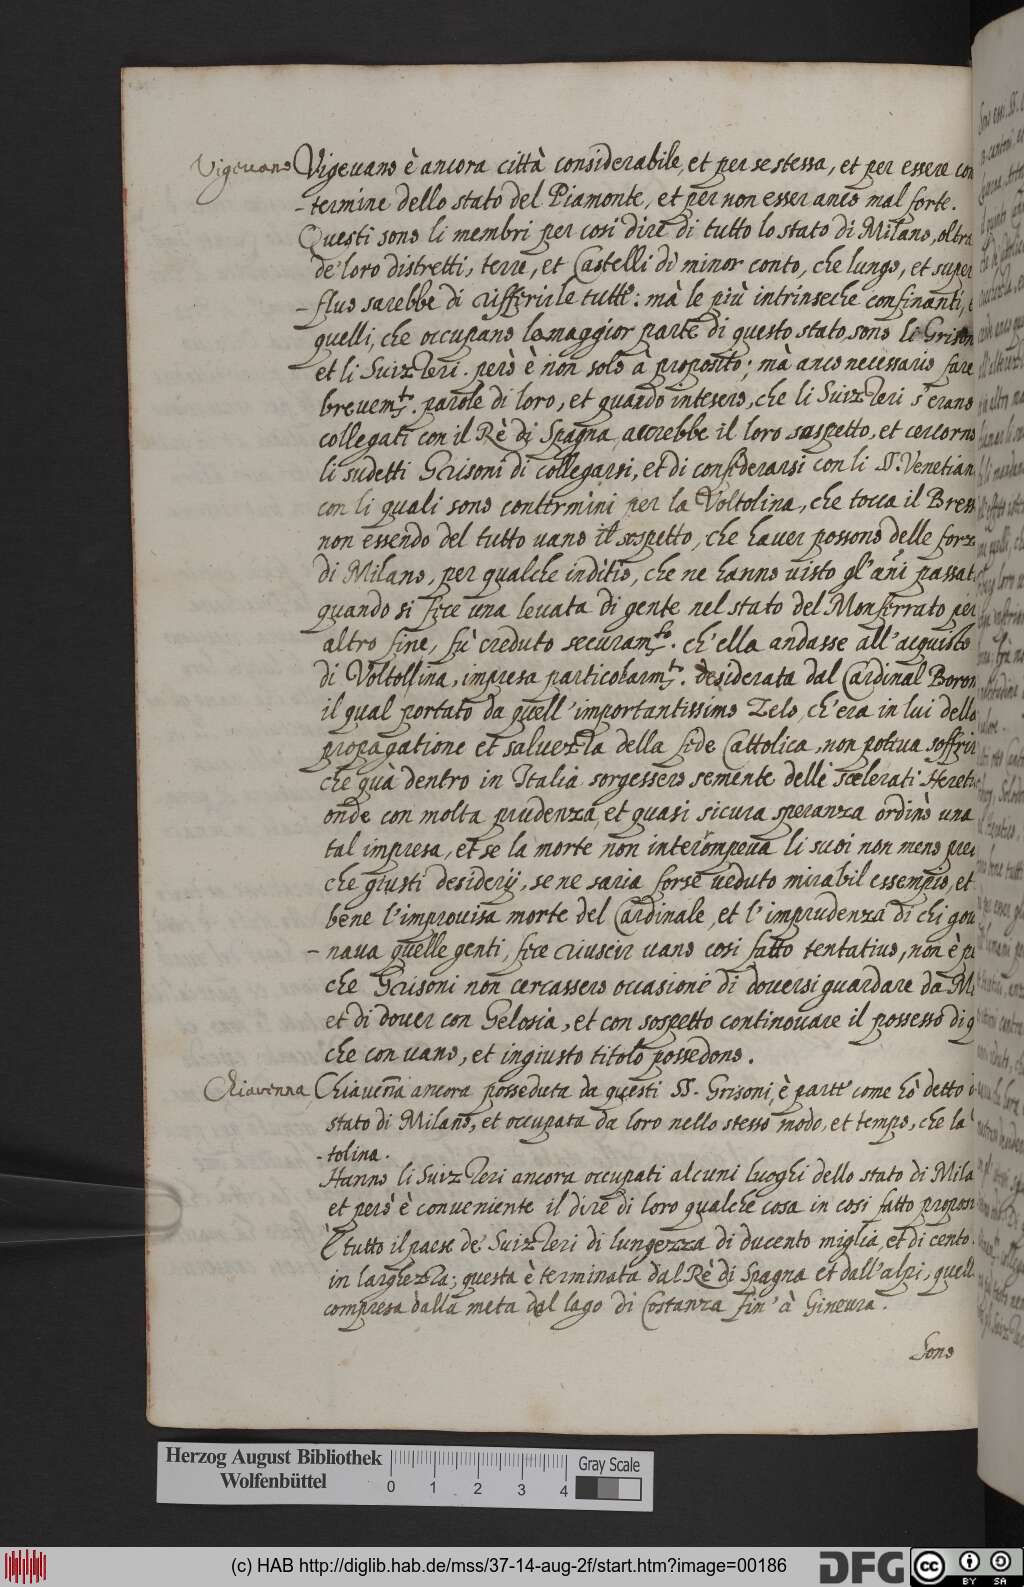 Vigeuano Vigeuano è ancora città considerabile, et per se stessa, et per essere con
-termine dello stato del Piamonte, et per non esser anco mal forte.
Questi sono li membri per cosi dire di tutto lo stato di Milano, oltra
de' loro distretti, terre, et Castelli di minor conto, che lungo, et super
-fluo sarebbe di rifferirle tutte: mà le più intrinseche confinanti,
quelli, che occupano la maggior parte di questo stato, sono li Grison
et li Suizzeri. però è non solo à proposito; mà anco necessario fare
brevem.te parole di loro, et quando intesero, che li Suizzeri s'erano
collegati con il Rè di Spagna, accrebbe il loro sospetto, et cercorno
li sudetti Grisoni di collegarsi, et di confederarsi con li SS.ri Venetian
con li quali sono conttermini per la Voltolina, che tocca il Bress
non essendo del tutto vano il sospetto, che haver possono delle forz
di Milano, per qualche inditio, che ne hanno visto gl'añi passat
quando si fece una levata di gente nel stato del Monferrato per
altro fine, fù creduto securam.te ch'ella andasse all'acquisto
di Voltollina, impresa particolarm.te desiderata dal Cardinal Boron
il qual portato da quell'importantissimo Zelo, ch'era in lui dello
propagatione et salvezza della fede Cattolica, non poteua soffrir
che quà dentro in Italia sorgessero semente delle scelerati Hereti
onde con molta prudenza, et quasi sicura speranza ordinò una
tal impresa, et se la morte non interõmpeua li suoi non meno
che giusti desiderij, se ne saria forse veduto mirabil essempio, et
bene l'improuisa morte del Cardinale, et l'imprudenza di chi gou
-naua quelle genti, fece riuscir vano cosi fatto tentatiuo, non è
che Grisoni non cercassero occasione di douersi guardare da Mi
et di dover con Gelosia, et con sospetto continouare il possesso di q
che con vano, et ingiusto titolo possedono.
Chiavenna, Chiaveña ancora posseduta da questi SS.ri Grisoni, è parte come hò detto
stato di Milano, et occupata da loro nello stesso modo, et tempo, che la
-tolina.
Hanno li Suizzeri ancora occupati alcuni luoghi dello stato di Mila
et però è conveniente il dire di loro qualche cosa in cosi fatto propos
È tutto il paese de' Suizzeri di lungezza di ducento miglia, et di cento
in larghezza; questa è terminata dal Rè di Spagna et dall'alpi, quell
compresa dalla meta del lago di Costanza fin' à Gineura.
Sono
Herzog August Bibliothek
Wolfenbüttel
0 1 2 3 4
Gray Scale
(c) HAB http://diglib.hab.de/mss/37-14-aug-2f/start.htm?image=00186
DFG
cc BY SA